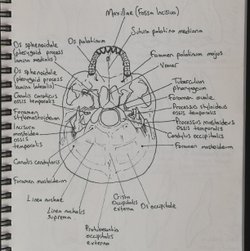 Maxillae (Fossa Incisiva)
Os palatinum
Sutura palatina mediana
Os sphenoidale
(pterygoid process
lamina medialis)
Foramen palatinum majus
Vomer
Os sphenoidale
(pterygoid process
lamina lateralis)
Tuberculum
pharyngeum
Canalis caroticus
ossis temporalis
Foramen ovale
Processus styloideus
ossis temporalis
Foramen
stylomastoideum
Processus mastoideus
ossis temporalis
Incisura
mastoidea
ossis
temporalis
Condylus occipitalis
Foramen mastoideum
Canalis condylaris
Foramen mastoideum
Linea nuchae
Crista
Occipitalis
externa
Os occipitale
Linea nuchalis
suprema
Protuberantia
occipitalis
externa